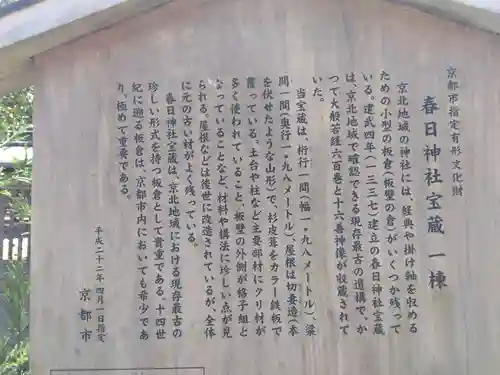 京都市指定有形文化財
春日神社宝蔵　一棟
京北地域の神社には、経典や掛け軸を収める
ための小型の板倉（板壁の倉）がいくつか残って
いる。建武四年（一三三七）建立の春日神社宝蔵
は、京北地域で確認できる現存最古の遺構で、か
つて大般若経六百巻と十六善神像が収蔵されて
いた。
当宝蔵は、桁行一間（幅一・九八メートル）、梁
間一間（奥行一・九八メートル）、屋根は切妻造（本
を伏せたような山形）で、杉皮葺をカラー鉄板で
覆っている。土台や柱など主要部材にクリ材が
多く使われていること、板壁の外側が格子組と
なっていることなど、材料や構法に珍しい点が見
られる。屋根などは後世に改造されているが、全体
に元の古い材がよく残っている。
春日神社宝蔵は、京北地域における現存最古の
珍しい形式を持つ板倉として貴重である。十四世
紀に遡る板倉は、京都市内においても希少であ
り、極めて重要である。
平成二十二年四月一日指定
京都市